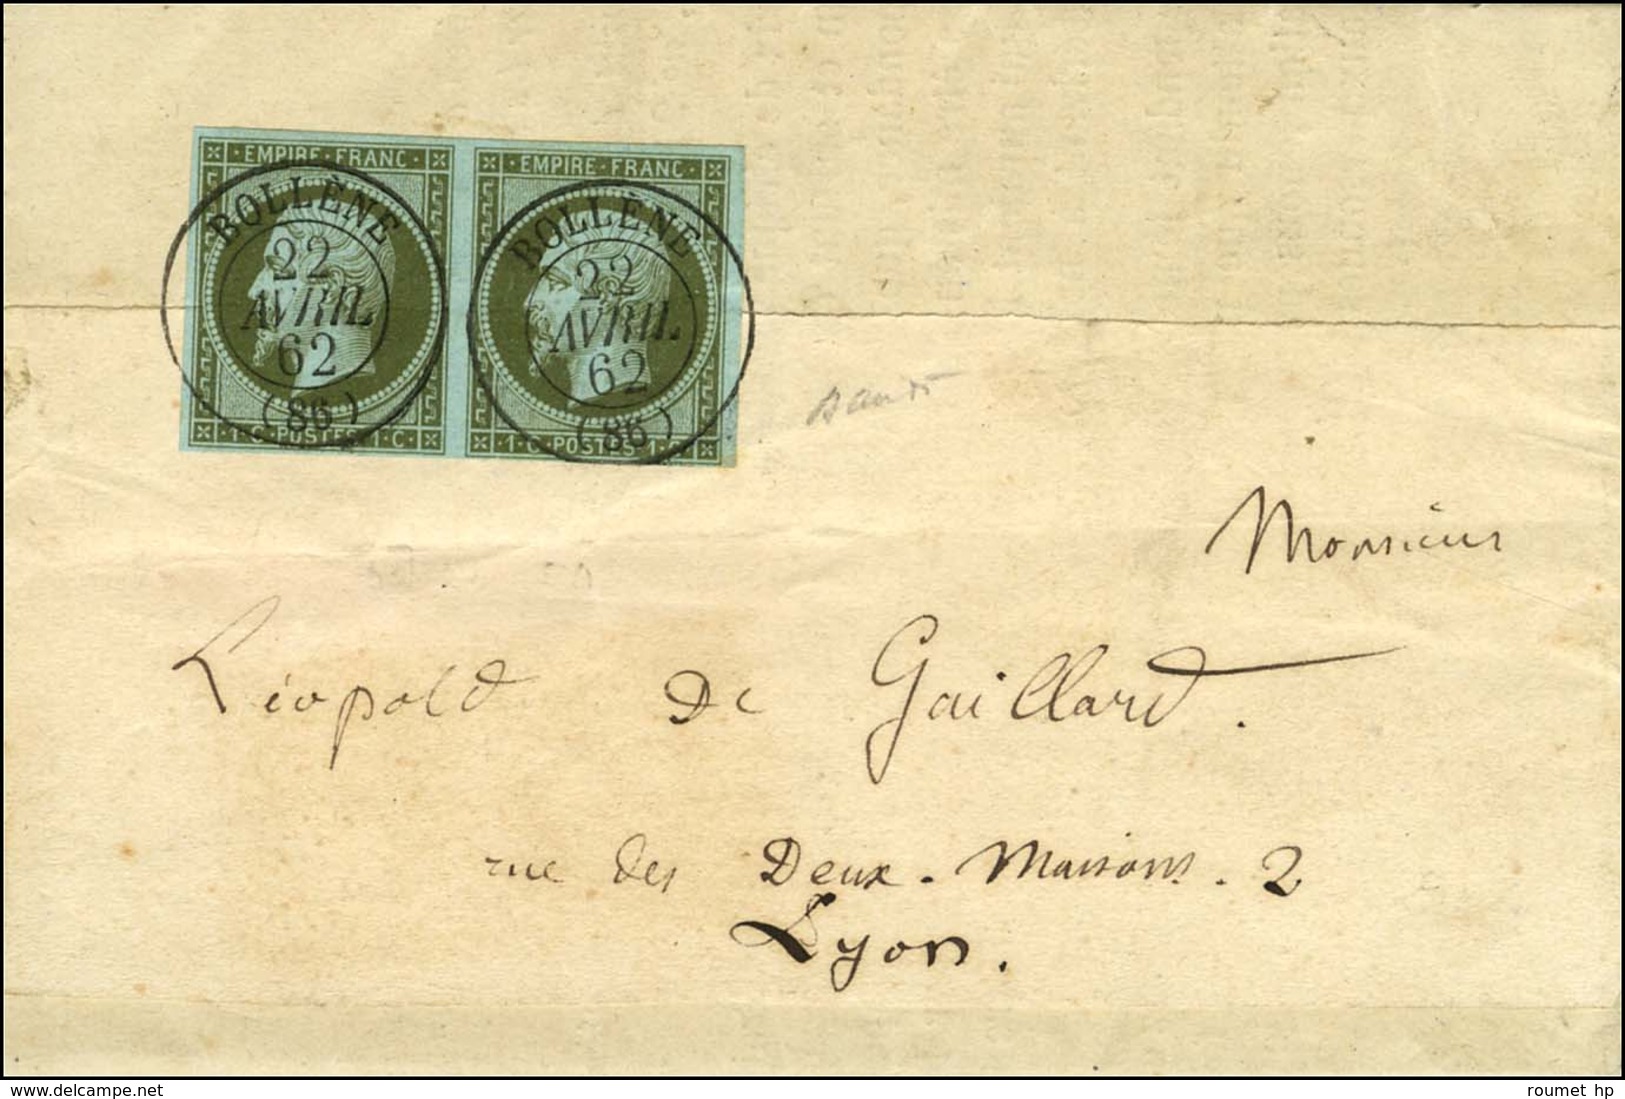 · EMPIRE · FRANC ·
· EMPIRE · FRANC ·
BOLLÈNE
22
AVRIL
62
(86)
BOLLÈNE
22
AVRIL
62
(86)
· 1 · C · POSTES · 1 · C ·
· 1 · C · POSTES · 1 · C ·
Monsieur
Léopold de Gaillard.
rue des Deux-Maisons. 2
Lyon.
delcampe.net
roumet hp